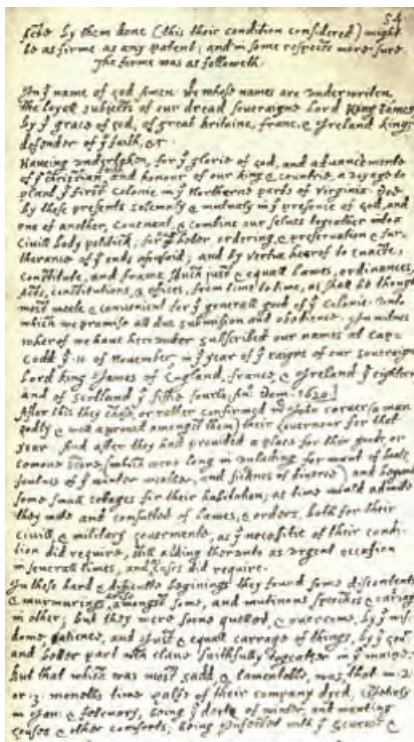 54
acts by them done (this their condition considered) might
be as firme as any patent; and in some respects more sure.
The forme was as followeth.
In yͤ name of god Amen. We whose names are underwriten,
the loyall subjects of our dread soveraigne Lord King James
by yͤ grace of god, of great Britaine, franc, & Ireland king,
defender of yͤ faith, &c
Haveing undertaken, for yͤ glorie of god, and advancemente
of yͤ christian and honour of our king & countrie, a voyage to
plant yͤ first colonie in yͤ Northerne parts of Virginia. Doe
by these presents solemnly & mutualy in yͤ presence of god, and
one of another, covenant, & combine our selves togeather into a
civill body politick; for yͤ better ordering, & preservation & fur=
therance of yͤ ends aforesaid; and by vertue hearof to enacte,
constitute, and frame shuch just & equall lawes, ordinances,
Acts, constitutions, & offices, from time to time, as shall be thought
most meete & convenient for yͤ generall good of yͤ colonie: unto
which we promise all due submission and obedience. In witnes
wherof we have hereunder subscribed our names at Cap=
Codd yͤ .11. of November, in yͤ year of yͤ raigne of our soveraigne
Lord king James of England, france, & Ireland yͤ eighteen
and of Scotland yͤ fiftie fourth. An: Dom. 1620.]
After this they chose, or rather confirmed mr John Carver (a man
godly & well approved amongst them) their Governour for that
year. And after they had provided a place for their goods, or
comone store, (which were long in unlading for want of boats,
foulnes of yͤ winter weather, and sicknes of diverce) and begune
some small cottages for their habitation; as time would admitte
they mette and consulted of lawes, & orders, both for their
civill, & military Govermente, as yͤ necessitie of their condi=
tion did require, still adding therunto as urgent occasion
in severall times, and as cases did require.
In these hard & difficulte beginings they found some discontents
& murmurings arise amongst some, and mutinous speeches & carriags
in other; but they were soone quelled, & overcome, by yͤ wis=
dome, patience, and just & equall carrage of things, by yͤ Govr
and better part wch clave faithfully togeather in yͤ maine.
But that which was most sadd, & lamentable, was, that in .2.
or .3. moneths time halfe of their company dyed, espetialy
in Jan: & february, being yͤ depth of winter, and wanting
houses & other comforts; being infected with yͤ scurvie &